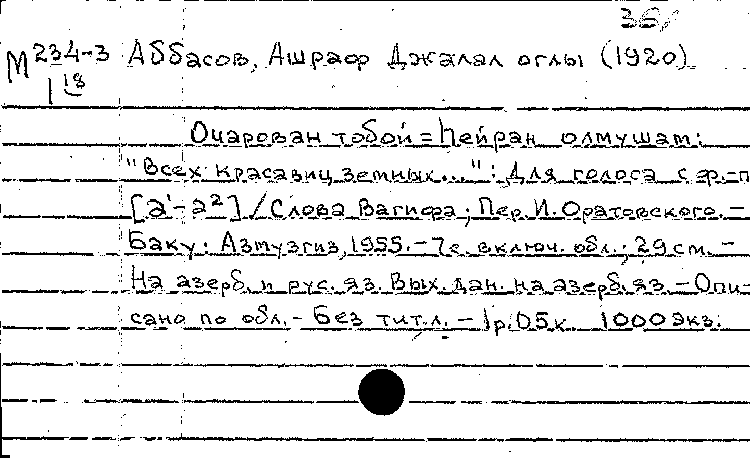 36
М 234-3 Аббасов, Ашраф Джалал оглы (1920)
18
Очарован тобой = һейран олмушам:
"Всех красавиц земных...": Для голоса с ф.-п
[a¹-a²] / Слова Вагифа; Пер. И. Оратовского. -
Баку: Азмузгиз, 1955. - 7с. включ. обл.; 29см. -
На азерб. и рус. яз. Вых. дан. на азерб. яз. - Опи-
сано по обл. - Без тит.л. - 1р.05к 1000 экз.